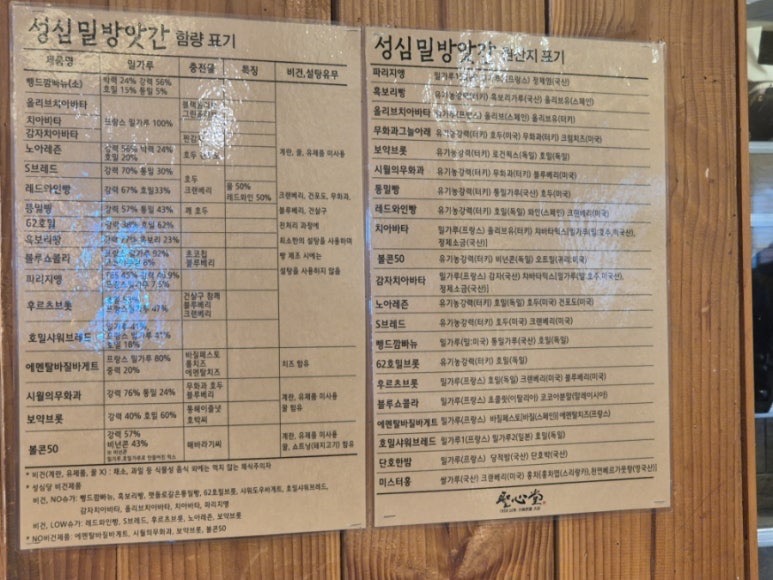 성심밀방앗간 함량 표기
제품명 밀가루 충전물 특징 비건,설탕유무
빵드깜빠뉴(소) 박력 24% 강력 56%
호밀 15% 통밀 5%
올리브치아바타
치아바타 프랑스 밀가루 100%
감자치아바타
노아레즌 강력 56% 박력 24%
호밀 20% 호두
계란, 꿀, 유제품 미사용
S브레드 강력 70% 통밀 30%
호두
크랜베리
레드와인빵 강력 67% 호밀33% 물 50%
레드와인 50%
크랜베리, 건포도, 무화과,
블루베리, 건살구
전처리 과정에
최소한의 설탕을 사용하며
빵 제조 시에는
설탕을 사용하지 않음
통밀빵 강력 57% 통밀 43% 깨 호두
62호밀 강력 38% 호밀 62%
흑보리빵 강력 77% 흑보리 23%
블루쇼콜라 프랑스 밀가루 92% 초코칩
블루베리
파리지앵 T65 45% 강력
프랑스밀가루 7.5%
후르츠브롯 47% 건살구 참깨
블루베리
크랜베리
호밀샤워브레드 밀가루 41%
프랑스 밀가루 41%
호밀 18%
에멘탈바질바게트 프랑스 밀가루 80%
중력 20% 바질페스토
롤치즈
에멘탈치즈 치즈 함유
시월의무화과 강력 76% 통밀 24% 무화과 호두
블루베리 계란, 유제품 미사용
꿀 함유
보약브롯 강력 40% 호밀 60% 통해이즐넛
호박씨
볼콘50 강력 57%
비넌콘 43% 해바라기씨 계란, 유제품 미사용
꿀, 쇼트닝(돼지고기) 함유
* 비건(계란, 유제품, 꿀 X) : 채소, 과일 등 식물성 음식 외에는 먹지 않는 채식주의자
* 성심당 비건제품
비건, NO슈가: 빵드깜빠뉴, 흑보리빵, 맷돌로갈은통밀빵, 62호밀브롯, 샤워도우바게트, 호밀샤워브레드,
감자치아바타, 올리브치아바타, 치아바타, 파리지앵
비건, LOW슈가: 레드와인빵, S브레드, 후르츠브롯, 노아레즌, 보약브롯
* NO비건제품: 에멘탈바질바게트, 시월의무화과, 보약브롯, 볼콘50
성심밀방앗간 원산지 표기
파리지앵 (프랑스) 정제염(국산)
흑보리빵 유기농강력(터키) 흑보리가루(국산) 올리브유(스페인)
올리브치아바타 밀가루(프랑스) 올리브(스페인) 올리브유(터키)
무화과그놀아래 유기농강력(터키) 호두(미국) 무화과(터키) 크림치즈(미국)
보약브롯 유기농강력(터키) 로건믹스(독일) 호밀(독일)
시월의무화과 유기농강력(터키) 무화과(터키) 블루베리(미국)
통밀빵 유기농강력(터키) 통밀가루(국산) 호두(미국)
레드와인빵 유기농강력(터키) 호밀(독일) 와인(스페인) 크랜베리(미국)
치아바타 밀가루(프랑스) 올리브유(터키) 치바타믹스[밀가루(밀:호주,미국산),
정제소금(국산)]
볼콘50 유기농강력(터키) 비넌콘(독일) 오트밀(귀리:미국)
감자치아바타 밀가루(프랑스) 감자(국산) 치바타믹스[밀가루(밀:호주,미국산),
정제소금(국산)]
노아레즌 유기농강력(터키) 호밀(독일) 호두(미국) 건포도(미국)
S브레드 유기농강력(터키) 호두(미국) 크랜베리(미국)
빵드깜빠뉴 밀가루(밀:미국) 통밀가루(국산) 호밀(독일)
62호밀브롯 유기농강력(터키) 호밀(독일)
후르츠브롯 밀가루(프랑스) 호밀(독일) 크랜베리(미국) 블루베리(미국)
블루쇼콜라 밀가루(프랑스) 초콜릿(이탈리아) 코코아분말(말레이시아)
에멘탈바질바게트 밀가루(프랑스) 바질페스토[바질(스페인)] 에멘탈치즈(프랑스)
호밀샤워브레드 밀가루1(프랑스) 밀가루2(일본) 호밀(독일)
단호한밤 밀가루(프랑스) 당적밤(국산) 단호박(국산)
미스터홍 쌀가루(국산) 크랜베리(미국) 홍차[홍차엽(스리랑카),천연베르가못향(영국산)]
聖心堂